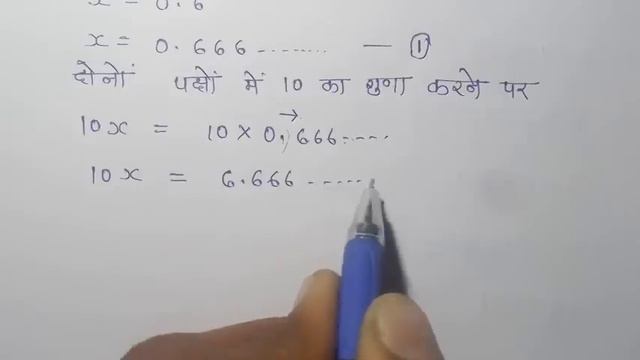 x = 0.6
x = 0.666........ — ①
दोनों पक्षों में 10 का गुणा करने पर
10x = 10 × 0.666.....
10x = 6.666......